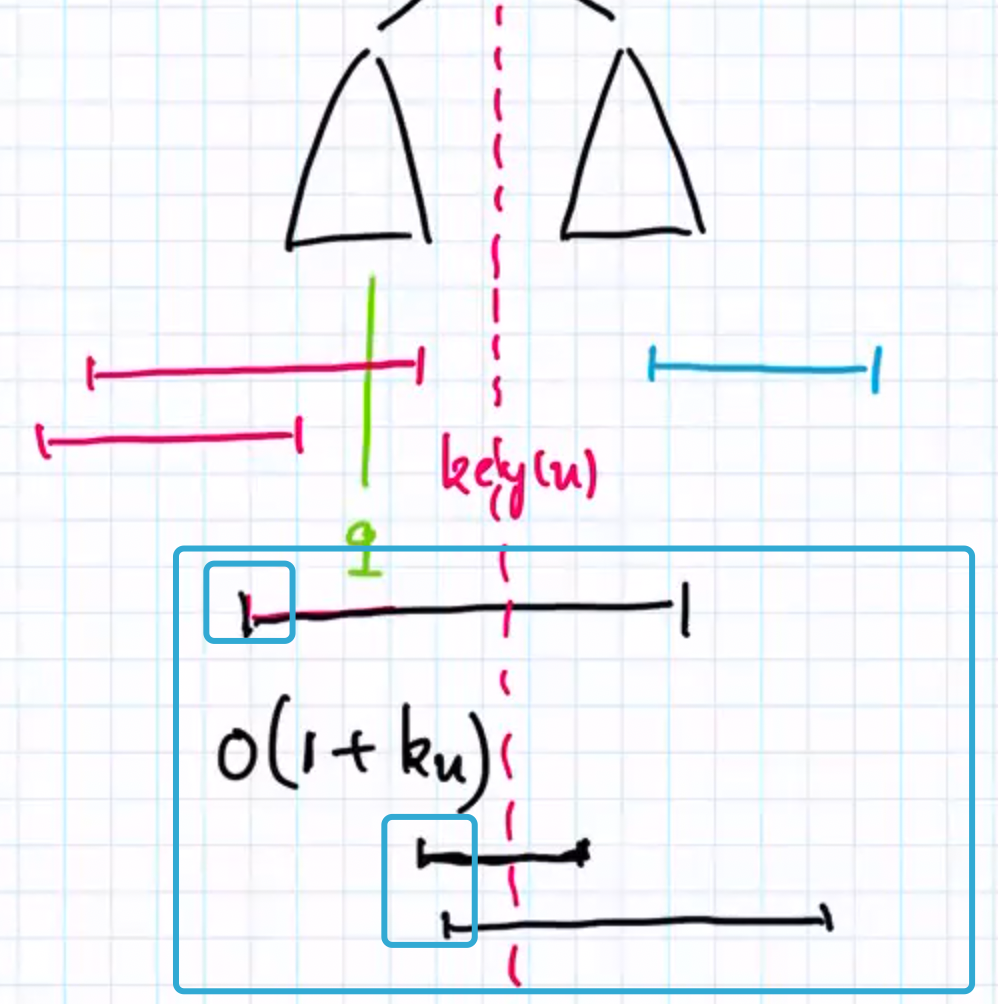 key(u)
q
O(1 + ku)